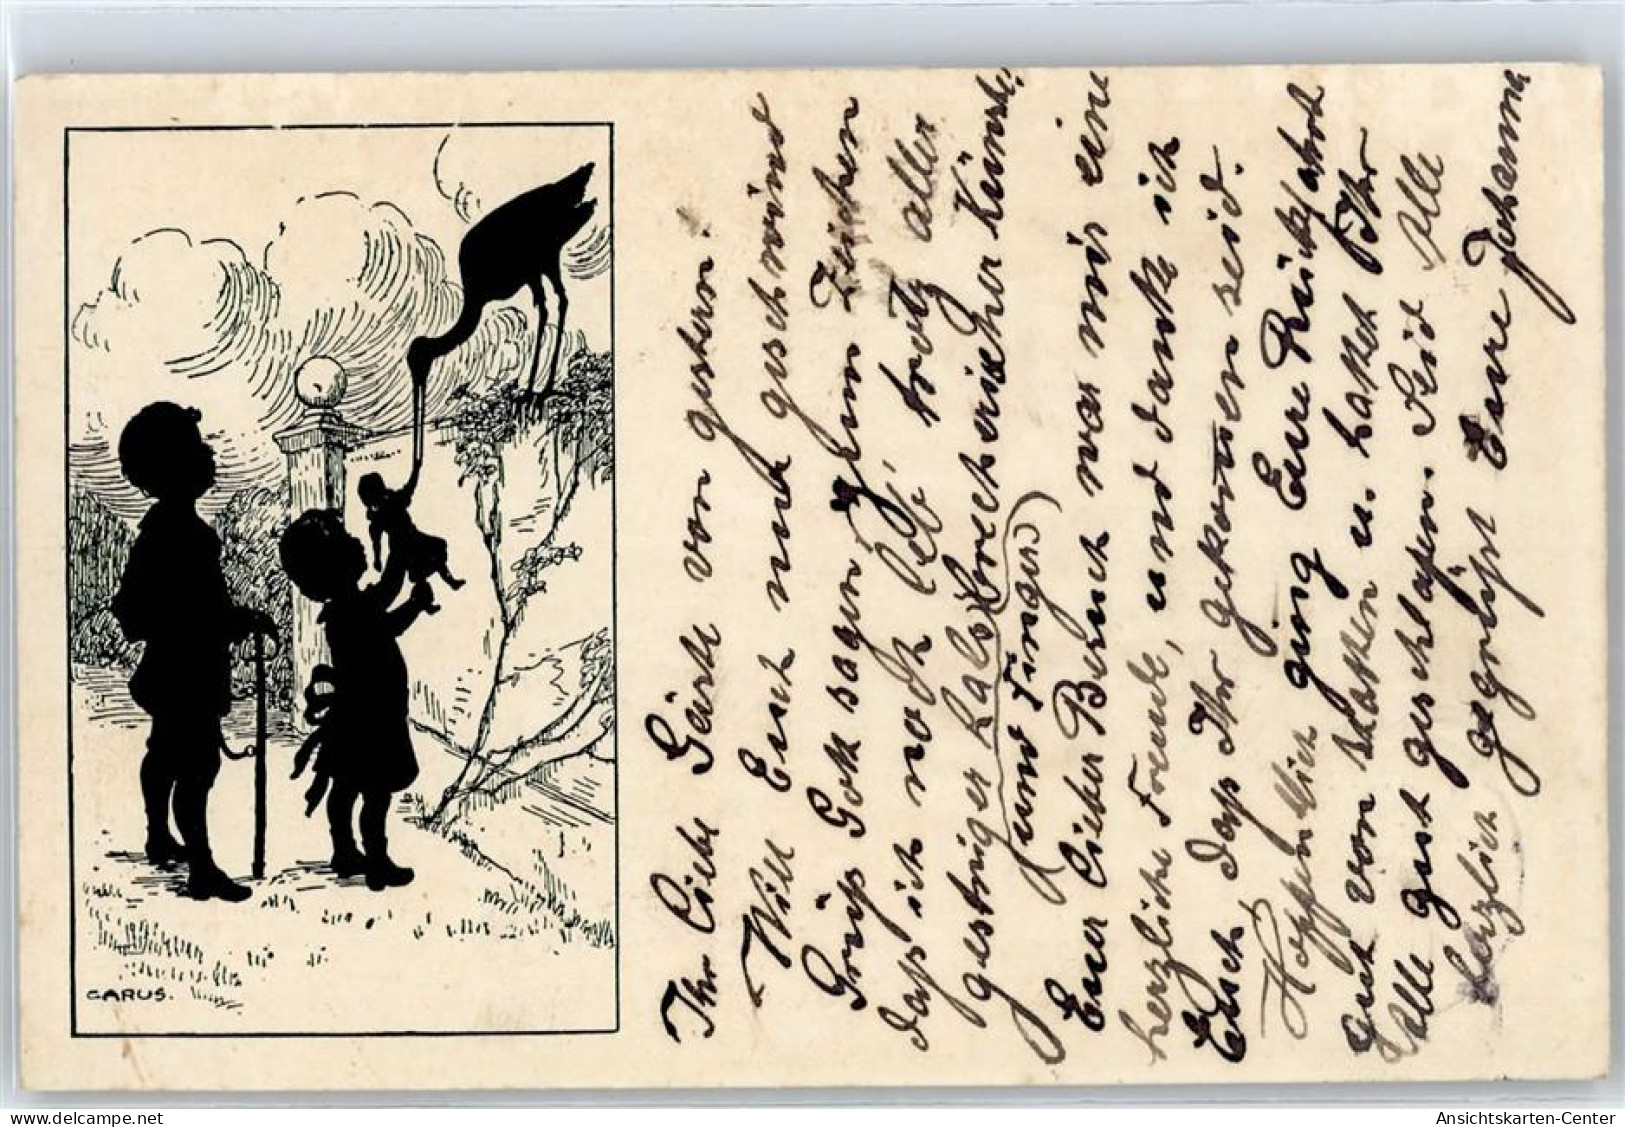 CARUS.
Ihr Liebe Gäste von gestern!
Will Euch nur geschwind
Grüß Gott sagen zum Zeichen
daß ich noch leb', trotz aller
gestriger halsbrecherischer Künste,
(und Finger)
Euer lieber Besuch war mir eine
herzliche Freude, und danke ich
Euch, daß Ihr gekommen seid.
Hoffentlich ging Eure Rückfahrt
gut von statten u. hattet Ihr
alle gut geschlafen. Seid Alle
herzlich gegrüßt Eure Johanna
Ansichtskarten-Center